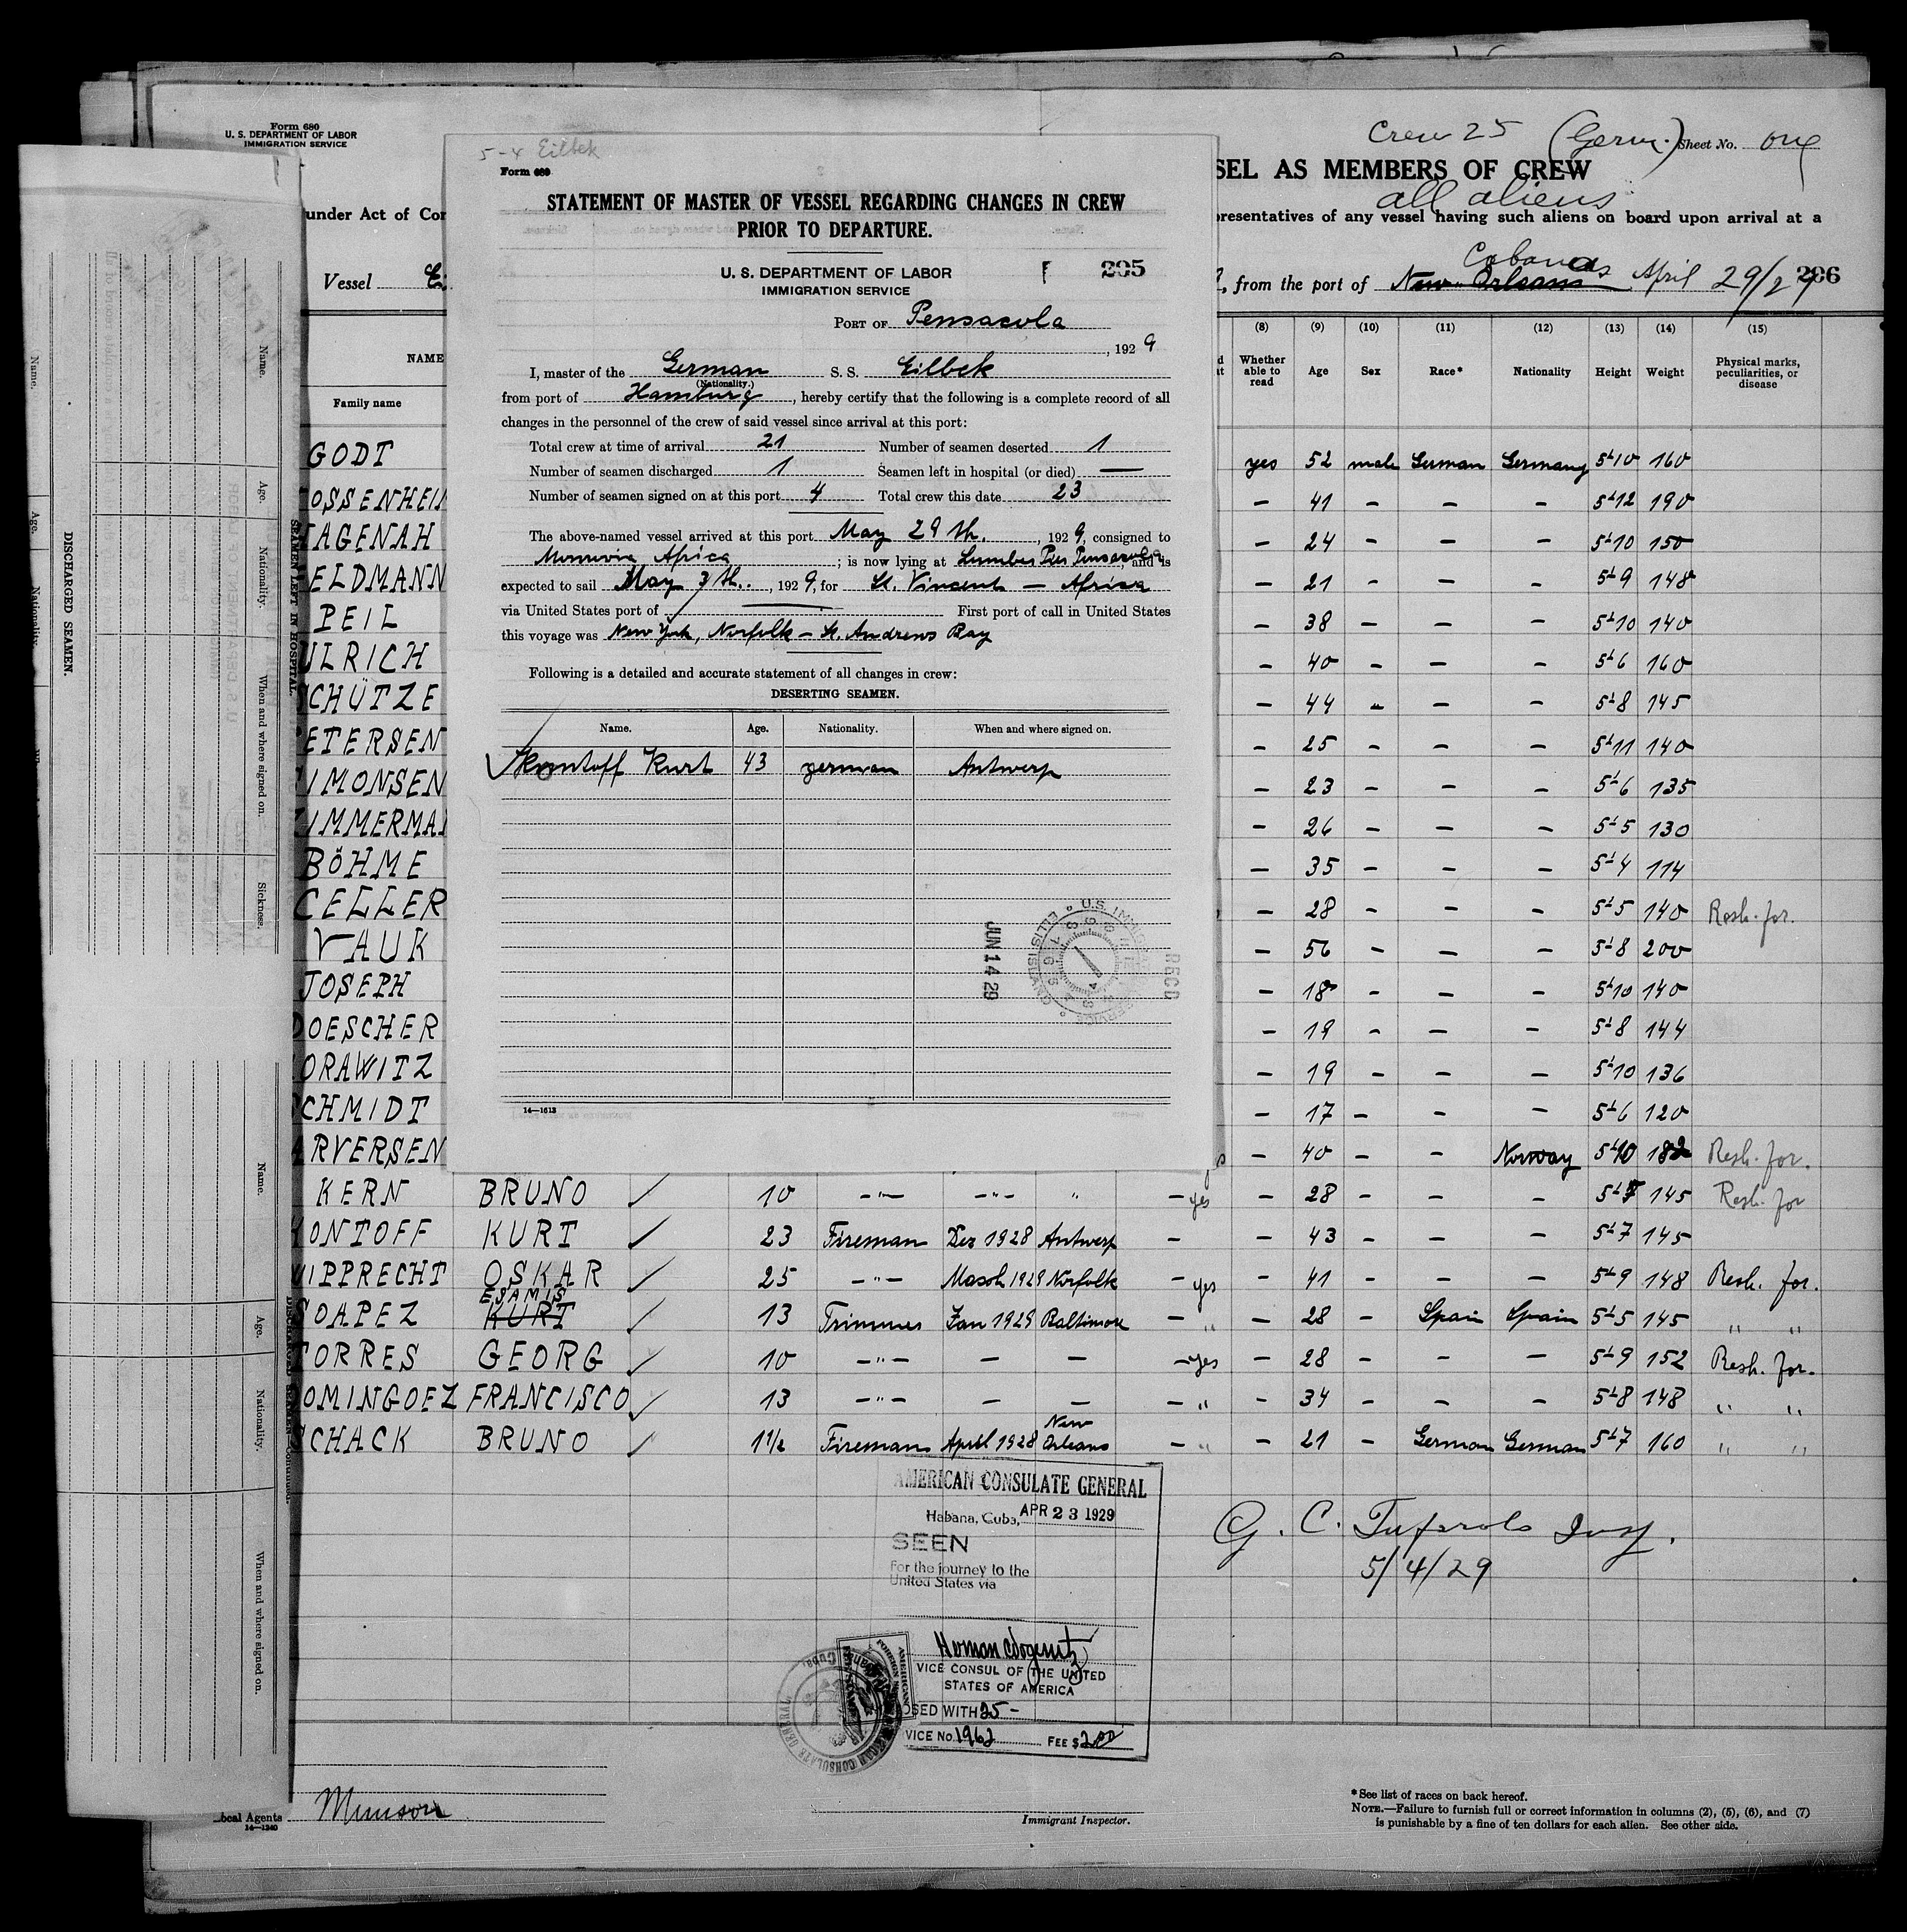 Form 680
U. S. DEPARTMENT OF LABOR
IMMIGRATION SERVICE
Crew 25 (Germ.) Sheet No. one
SEL AS MEMBERS OF CREW
all aliens
under Act of Con
presentatives of any vessel having such aliens on board upon arrival at a
Cabanas
Vessel
, from the port of New Orleans April 29/29
206
5-4 Eilbek
Form 689
STATEMENT OF MASTER OF VESSEL REGARDING CHANGES IN CREW
PRIOR TO DEPARTURE.
U. S. DEPARTMENT OF LABOR
IMMIGRATION SERVICE
205
PORT OF Pensacola
, 1929
I, master of the German S. S. Eilbek
(Nationality.)
from port of Hamburg, hereby certify that the following is a complete record of all
changes in the personnel of the crew of said vessel since arrival at this port:
Total crew at time of arrival 21 Number of seamen deserted 1
Number of seamen discharged 1 Seamen left in hospital (or died) —
Number of seamen signed on at this port 4 Total crew this date 23
The above-named vessel arrived at this port May 29th., 1929, consigned to
Monrovia Africa; is now lying at Lumber Pier Pensacola, and is
expected to sail May 7th., 1929, for St. Vincent — Africa
via United States port of — First port of call in United States
this voyage was New York, Norfolk — St. Andrews Bay
Following is a detailed and accurate statement of all changes in crew:
DESERTING SEAMEN.
Name. Age. Nationality. When and where signed on.
Kurt 43 german Antwerp
JUN 14 29
RECD
U.S. IMMIGRATION SERVICE
ELLIS ISLAND
14—1613
NAME
Family name
(8) (9) (10) (11) (12) (13) (14) (15)
Whether able to read Age Sex Race* Nationality Height Weight Physical marks, peculiarities, or disease
GODT yes 52 male German Germany 5-10 160
OSSENHEI — 41 — — — 5-12 190
AGENAH — 24 — — — 5-10 150
ELDMANN — 21 — — — 5-9 148
PEIL — 38 — — — 5-10 140
ULRICH — 40 — — — 5-6 160
SCHÜTZE — 44 — — — 5-8 145
ETERSEN — 25 — — — 5-11 140
IMONSEN — 23 — — — 5-6 135
IMMERMA — 26 — — — 5-5 130
BÖHME — 35 — — — 5-4 114
CELLER — 28 — — — 5-5 140 Resh. for.
VAUK — 56 — — — 5-8 200
JOSEPH — 18 — — — 5-10 140
DOESCHER — 19 — — — 5-8 144
ORAWITZ — 19 — — — 5-10 136
SCHMIDT — 17 — — — 5-6 120
ARVERSEN — 40 — — Norway 5-10 182 Resh. for.
KERN BRUNO ✓ 10 —"— —"— " — yes — 28 — — — 5-7 145 Resh. for
ONTOFF KURT ✓ 23 Fireman Dez 1928 Antwerp — — 43 — — — 5-7 145
IPPRECHT OSKAR ✓ 25 —"— March 1929 Norfolk — yes — 41 — — — 5-9 148 Resh. for.
ESAMIS
SOAPEZ KURT ✓ 13 Trimmer Jan 1929 Baltimore — " — 28 — Spain Spain 5-5 145 " "
TORRES GEORG ✓ 10 —"— — — — yes — 28 — — — 5-9 152 Resh. for.
DOMINGOEZ FRANCISCO ✓ 13 —"— — — — " — 34 — — — 5-8 148 " "
SCHACK BRUNO ✓ 1½ Fireman April 1928 New Orleans — " — 21 — German German 5-7 160 " "
AMERICAN CONSULATE GENERAL
Habana, Cuba, APR 23 1929
SEEN
For the journey to the
United States via
VICE CONSUL OF THE UNITED
STATES OF AMERICA
OSED WITH 25 -
VICE No. 1962 FEE $2.00
G. C.
5/4/29
Local Agents Munson
14—1240
Immigrant Inspector.
*See list of races on back hereof.
NOTE.—Failure to furnish full or correct information in columns (2), (5), (6), and (7)
is punishable by a fine of ten dollars for each alien. See other side.
DISCHARGED SEAMEN.
Name. Age. Nationality.
SEAMEN LEFT IN HOSPITAL.
Name. Age. Nationality. When and where signed on. Sickness.
Name. Age. Nationality. When and where signed on.